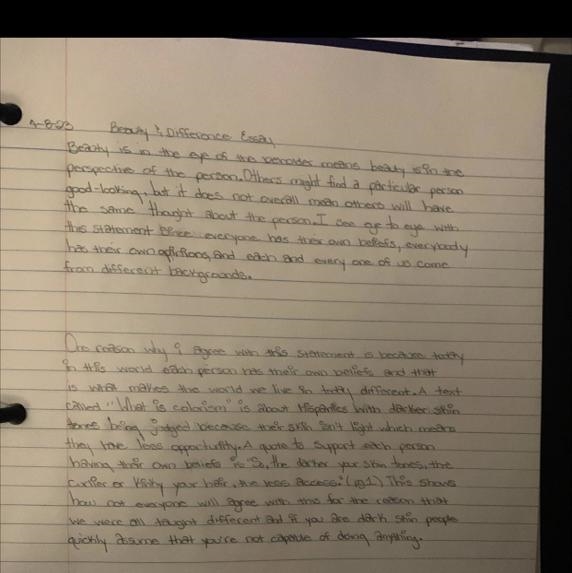 4-8-23 Beauty & Difference Essay
Beauty is in the eye of the beholder means beauty is in the
perspective of the person. Others might find a particular person
good-looking, but it does not overall mean others will have
the same thought about the person. I see eye to eye with
this statement since everyone has their own beliefs, everybody
has their own opinions, and each and every one of us come
from different backgrounds.
One reason why i agree with this statement is because today
in this world each person has their own beliefs and that
is what makes the world we live in today different. A text
called "What is colorism" is about Hispanics with darker skin
tones being judged because their skin isn't light which means
they have less opportunity. A quote to support each person
having their own beliefs is "So, the darker your skin tones, the
curlier or kinky your hair, the less access." (pg 1) This shows
how not everyone will agree with this for the reason that
we were all taught different and if you are dark skin people
quickly assume that you're not capable of doing anything.